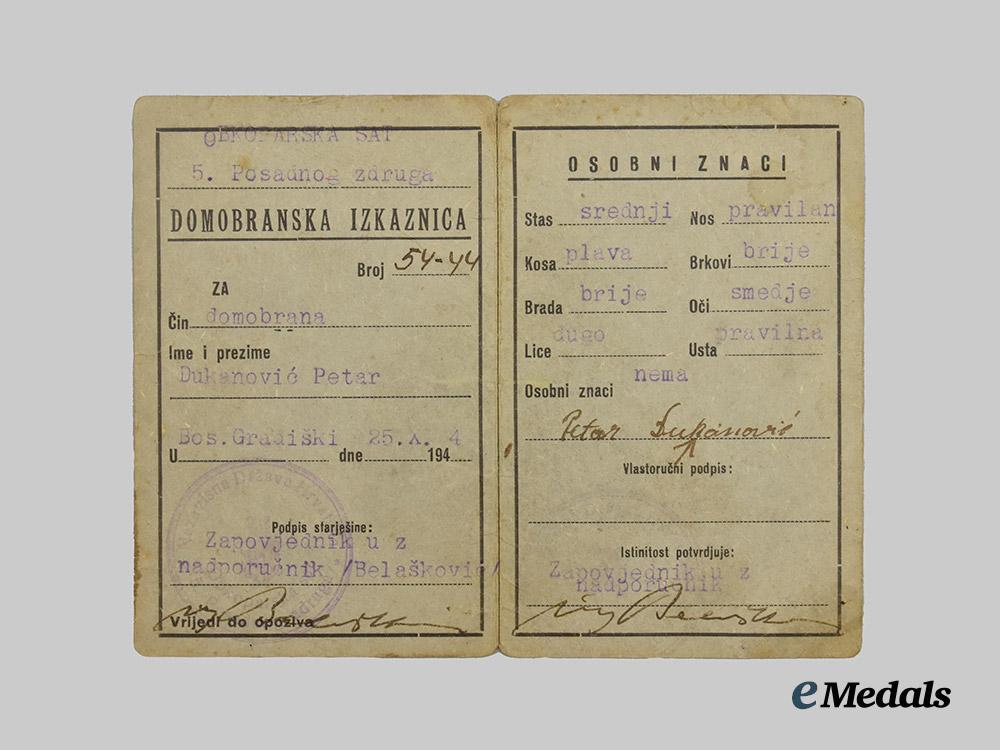 OBKOPARSKA SAT
5. Posadnog zdruga
DOMOBRANSKA IZKAZNICA
Broj 54-44
ZA
Čin domobrana
Ime i prezime
Dukanović Petar
Bos.Gradiški 25.X. 4
U dne 194
Nezavisna Država
Podpis starješine:
Zapovjednik u z
nadporučnik /Belašković/
Vrijedi do opoziva
OSOBNI ZNACI
Stas srednji Nos pravilan
Kosa plava Brkovi brije
Brada brije Oči smedje
Lice dugo Usta pravilna
Osobni znaci nema
Petar Dukanović
Vlastoručni podpis:
Istinitost potvrdjuje:
Zapovjednik u z
nadporučnik
eMedals